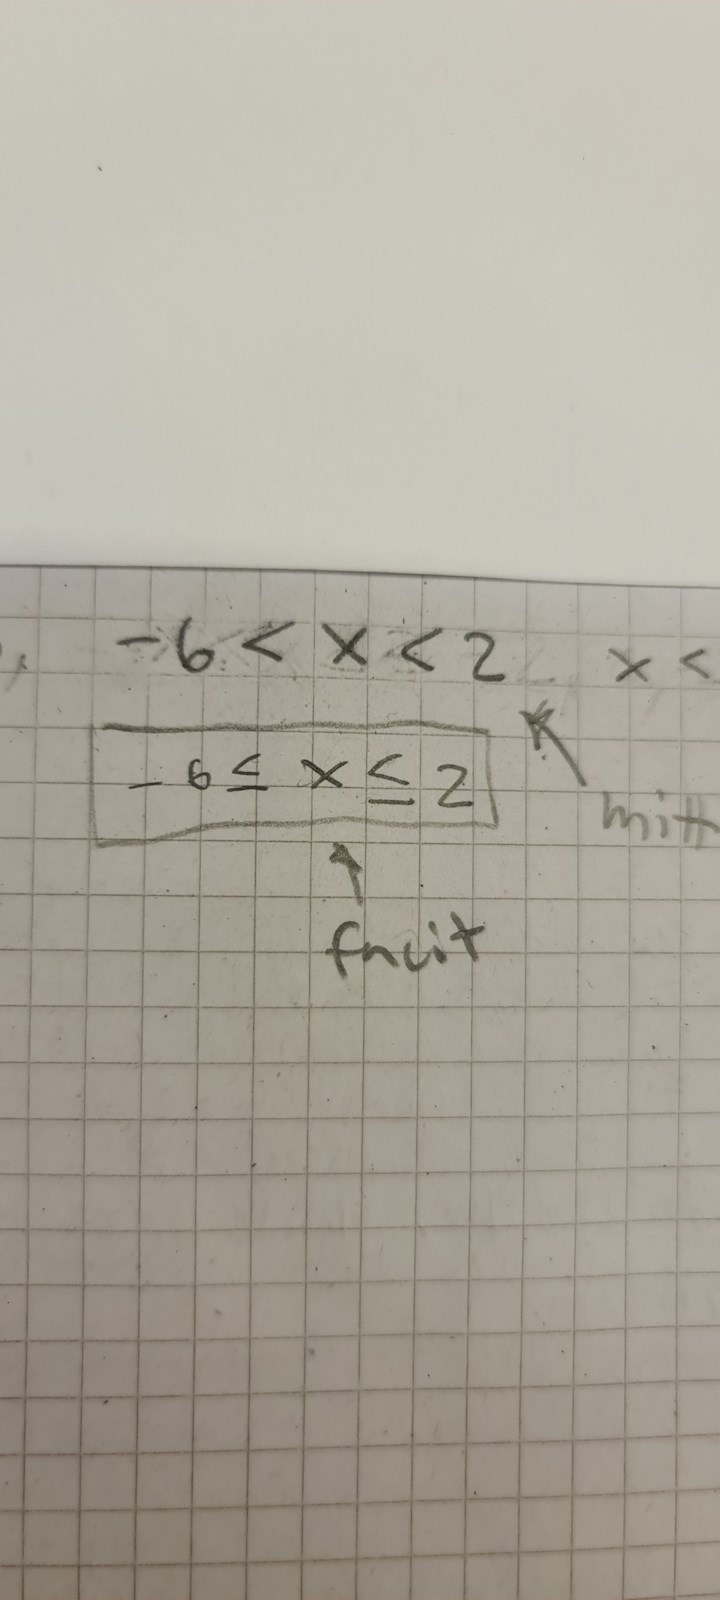 -6 < x < 2 x <
-6 ≤ x ≤ 2
mitt
facit